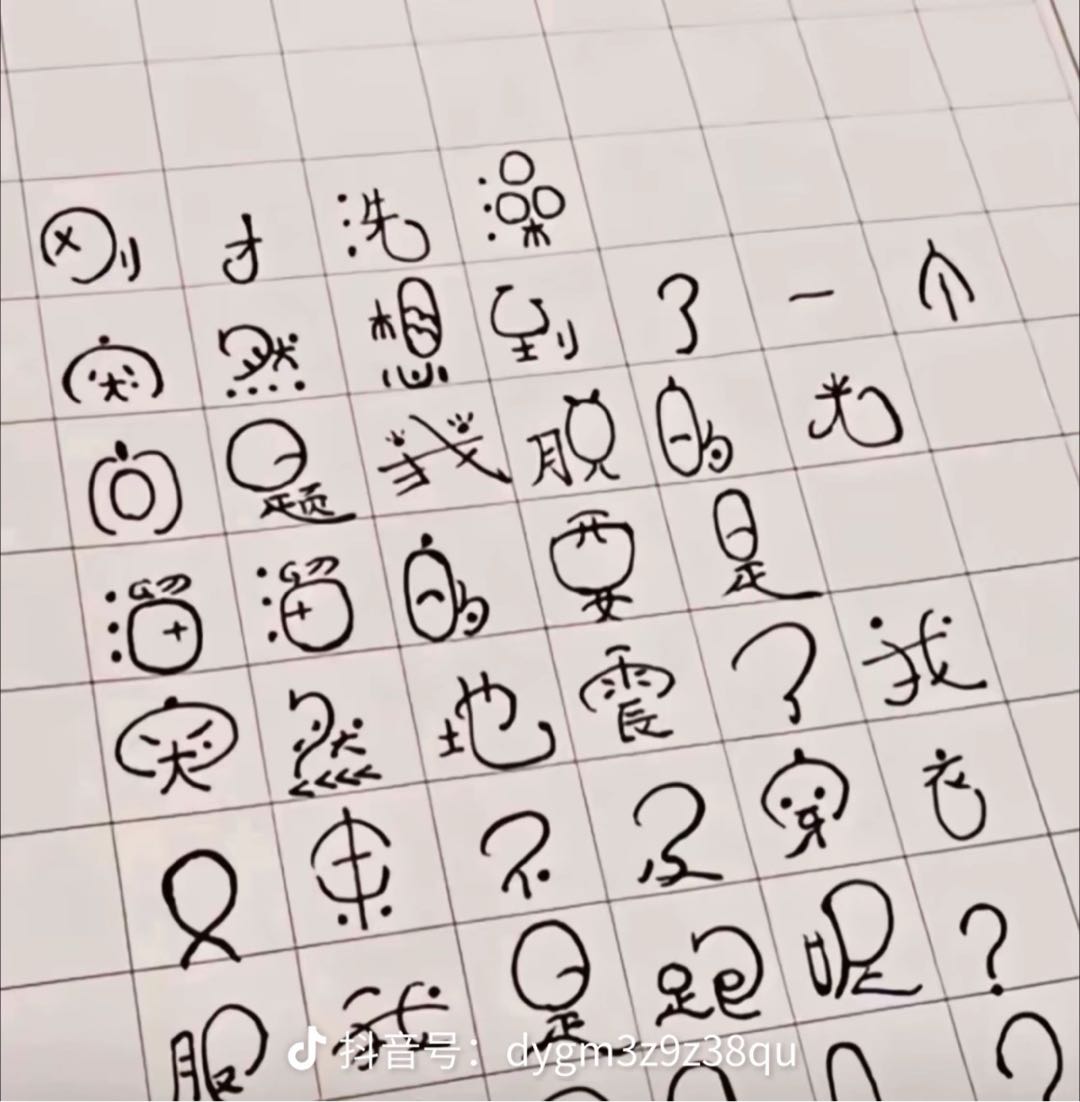 刚才洗澡
突然想到了一个
问题我脱的光
溜溜的要是
突然地震了我
又来不及穿衣
服我是跑呢？
抖音号：dygm3z9z38qu